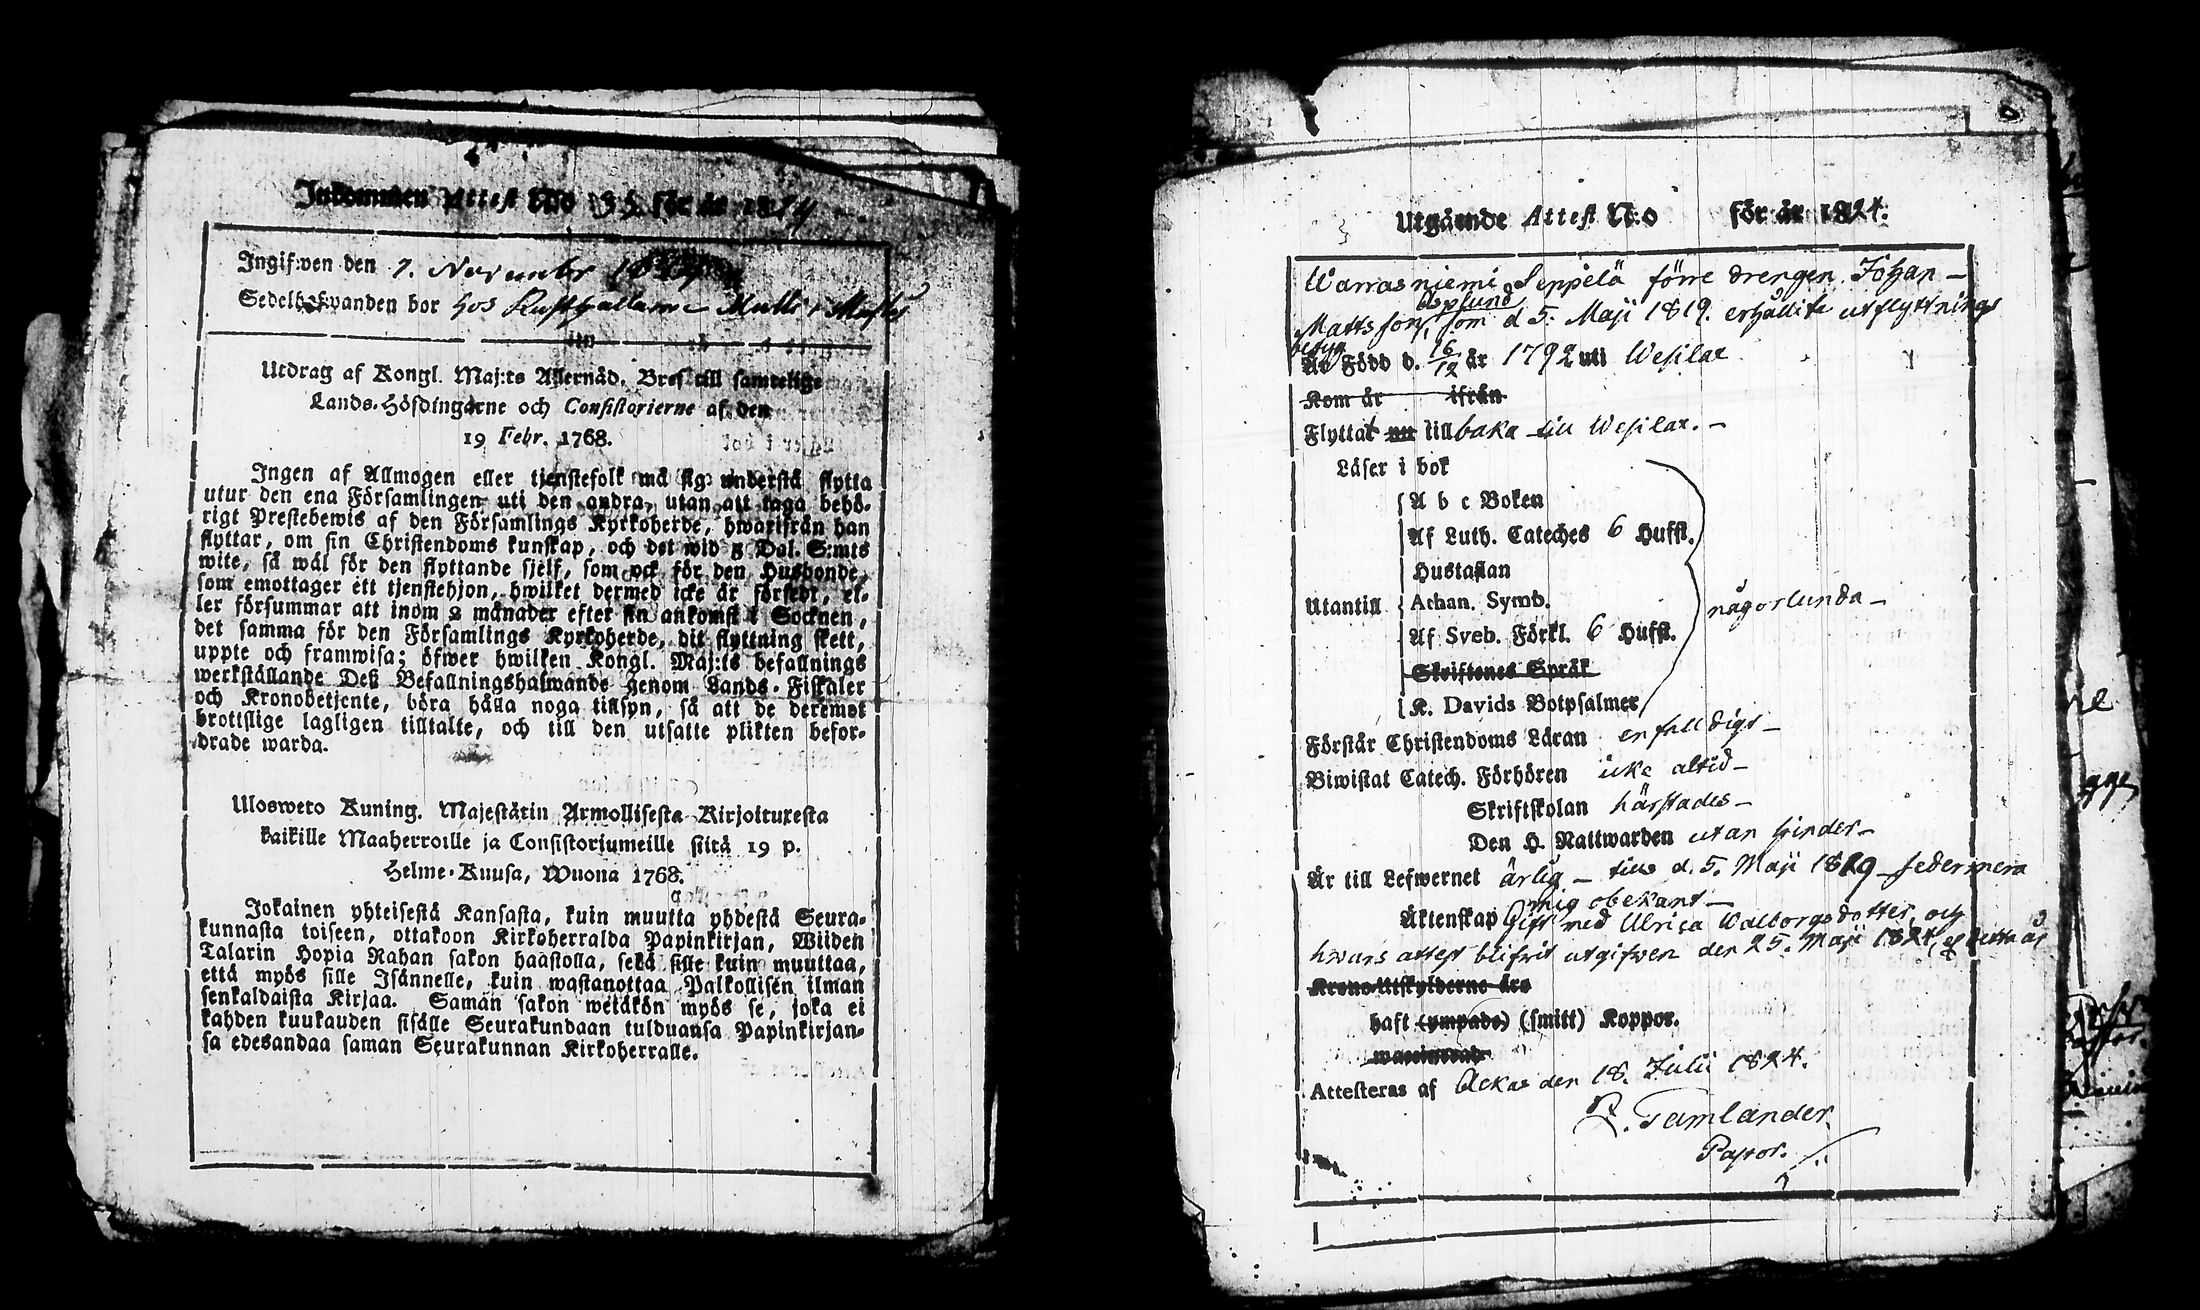 Inkommen Attest No 35 för år 1824
Ingifwen den 7. November
Sedelhafwanden bor hos Rusthållaren Matti
Utdrag af Kongl. Maj:ts Allernåd. Bref till samtelige
Lands-Höfdingarne och Consistorierne af den
19 Febr. 1768.
Ingen af Allmogen eller tjenstefolk må sig understå flytta
utur den ena Församlingen uti den andra, utan att taga behö-
rigt Prestebewis af den Församlings Kyrkoherde, hwarifrån han
flyttar, om sin Christendoms kunskap, och det wid Dal. S:mts
wite, så wäl för den flyttande sjelf, som ock för den Husbonde,
som emottager ett tjenstehjon, hwilket dermed icke är försedt, el-
ler försummar att inom 2 månader efter sin ankomst i Socknen,
det samma för den Församlings Kyrkoherde, dit flyttning skett,
uppte och framwisa; öfwer hwilken Kongl. Maj:ts befallnings
werkställande Deß Befallningshafwande genom Lands-Fiskaler
och Kronobetjente, böra hålla noga tillsyn, så att de deremot
brottslige lagligen tilltalte, och till den utsatte plikten befor-
drade warda.
Ulosweto Kuning. Majestätin Armollisesta Kirjoituxesta
kaikille Maaherroille ja Consistoriumeille siitä 19 p.
Helme-Kuusa, Wuona 1768.
Jokainen yhteisestä Kansasta, kuin muutta yhdestä Seura-
kunnasta toiseen, ottakoon Kirkoherralda Papinkirjan, Wiiden
Talarin Hopia Rahan sakon haastolla, sekä sille kuin muuttaa,
että myös sille Isännelle, kuin wastanottaa Palkollisen ilman
senkaldaista Kirjaa. Saman sakon wetäkön myös se, joka ei
kahden kuukauden sisälle Seurakundaan tulduansa Papinkirjan-
sa edesandaa saman Seurakunnan Kirkoherralle.
Utgående Attest N:o för år 1824.
Warrasniemi Seppelä förre drengen Johan –
Asplund
Mattsson, som d. 5. Maji 1819. erhållit utflyttnings
betyg
Är Född d. 16/12 år 1792 uti Wesilax
Kom år ifrån
Flyttat nu tillbaka till Wesilax. –
Läser i bok
A b c Boken
Af Luth. Cateches 6 Hufst.
Hustaflan
Utantill Athan. Symb. någorlunda –
Af Sveb. Förkl. 6 Hufst.
Skriftenes Språk
K. Davids Botpsalmer
Förstår Christendoms Läran enfalldigt –
Biwistat Catech. Förhören icke altid –
Skriftskolan härstädes –
Den H. Nattwarden utan hinder –
Är till Lefwernet ärlig – till d. 5. Maji 1819 – sedermera
mig obekant –
Äktenskap Gift med Ulrica Walborgsdotter, och
hwars attest blifwit utgifwen den 25. Maji 1824,
Krono-Utskylderne äro
haft (ympade) (smitt) Koppor.
Attesteras af Ackas den 18. Julii 1824.
Tamlander
Pastor.